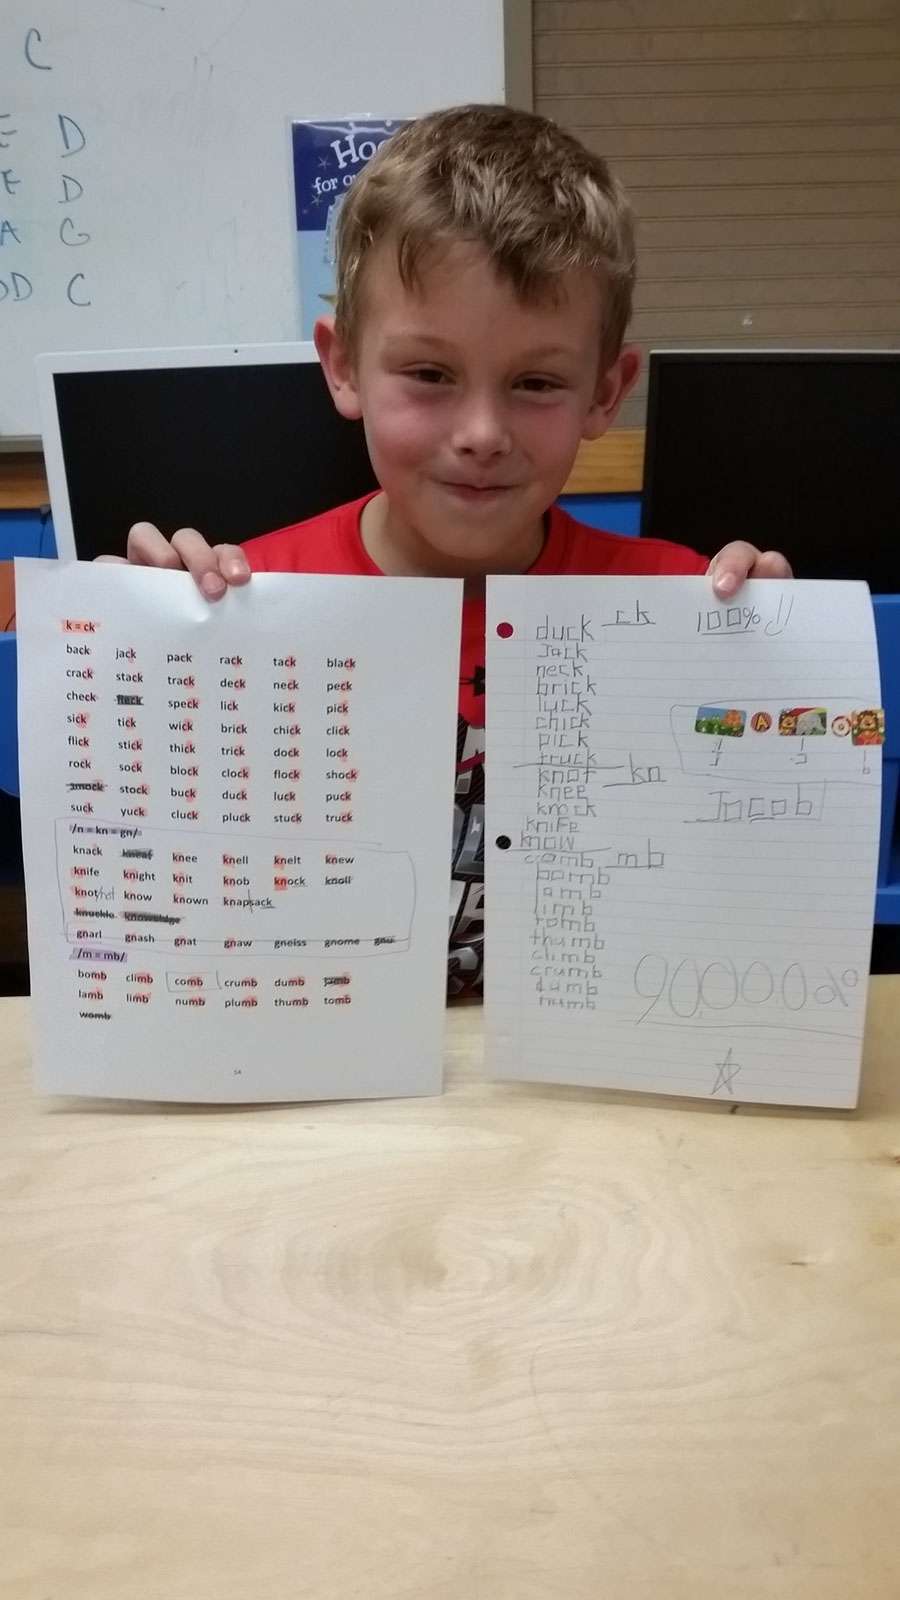 C
E D
F D
A G
DD C
Ho
for o
k = ck
back jack pack rack tack black
crack stack track deck neck peck
check fleck speck lick kick pick
sick tick wick brick chick click
flick stick thick trick dock lock
rock sock block clock flock shock
smock stock buck duck luck puck
suck yuck cluck pluck stuck truck
/n = kn = gn/
knack knead knee knell knelt knew
knife knight knit knob knock knoll
knot/not know known knapsack
knuckle knowledge
gnarl gnash gnat gnaw gneiss gnome gnu
/m = mb/
bomb climb comb crumb dumb jamb
lamb limb numb plumb thumb tomb
womb
54
duck ck 100%!!
Jack
neck
brick
luck
chick
pick
truck
knot kn
knee
knock
knife
know
comb mb
bomb
lamb
limb
tomb
thumb
climb
crumb
dumb
numb
A
Jacob
☆